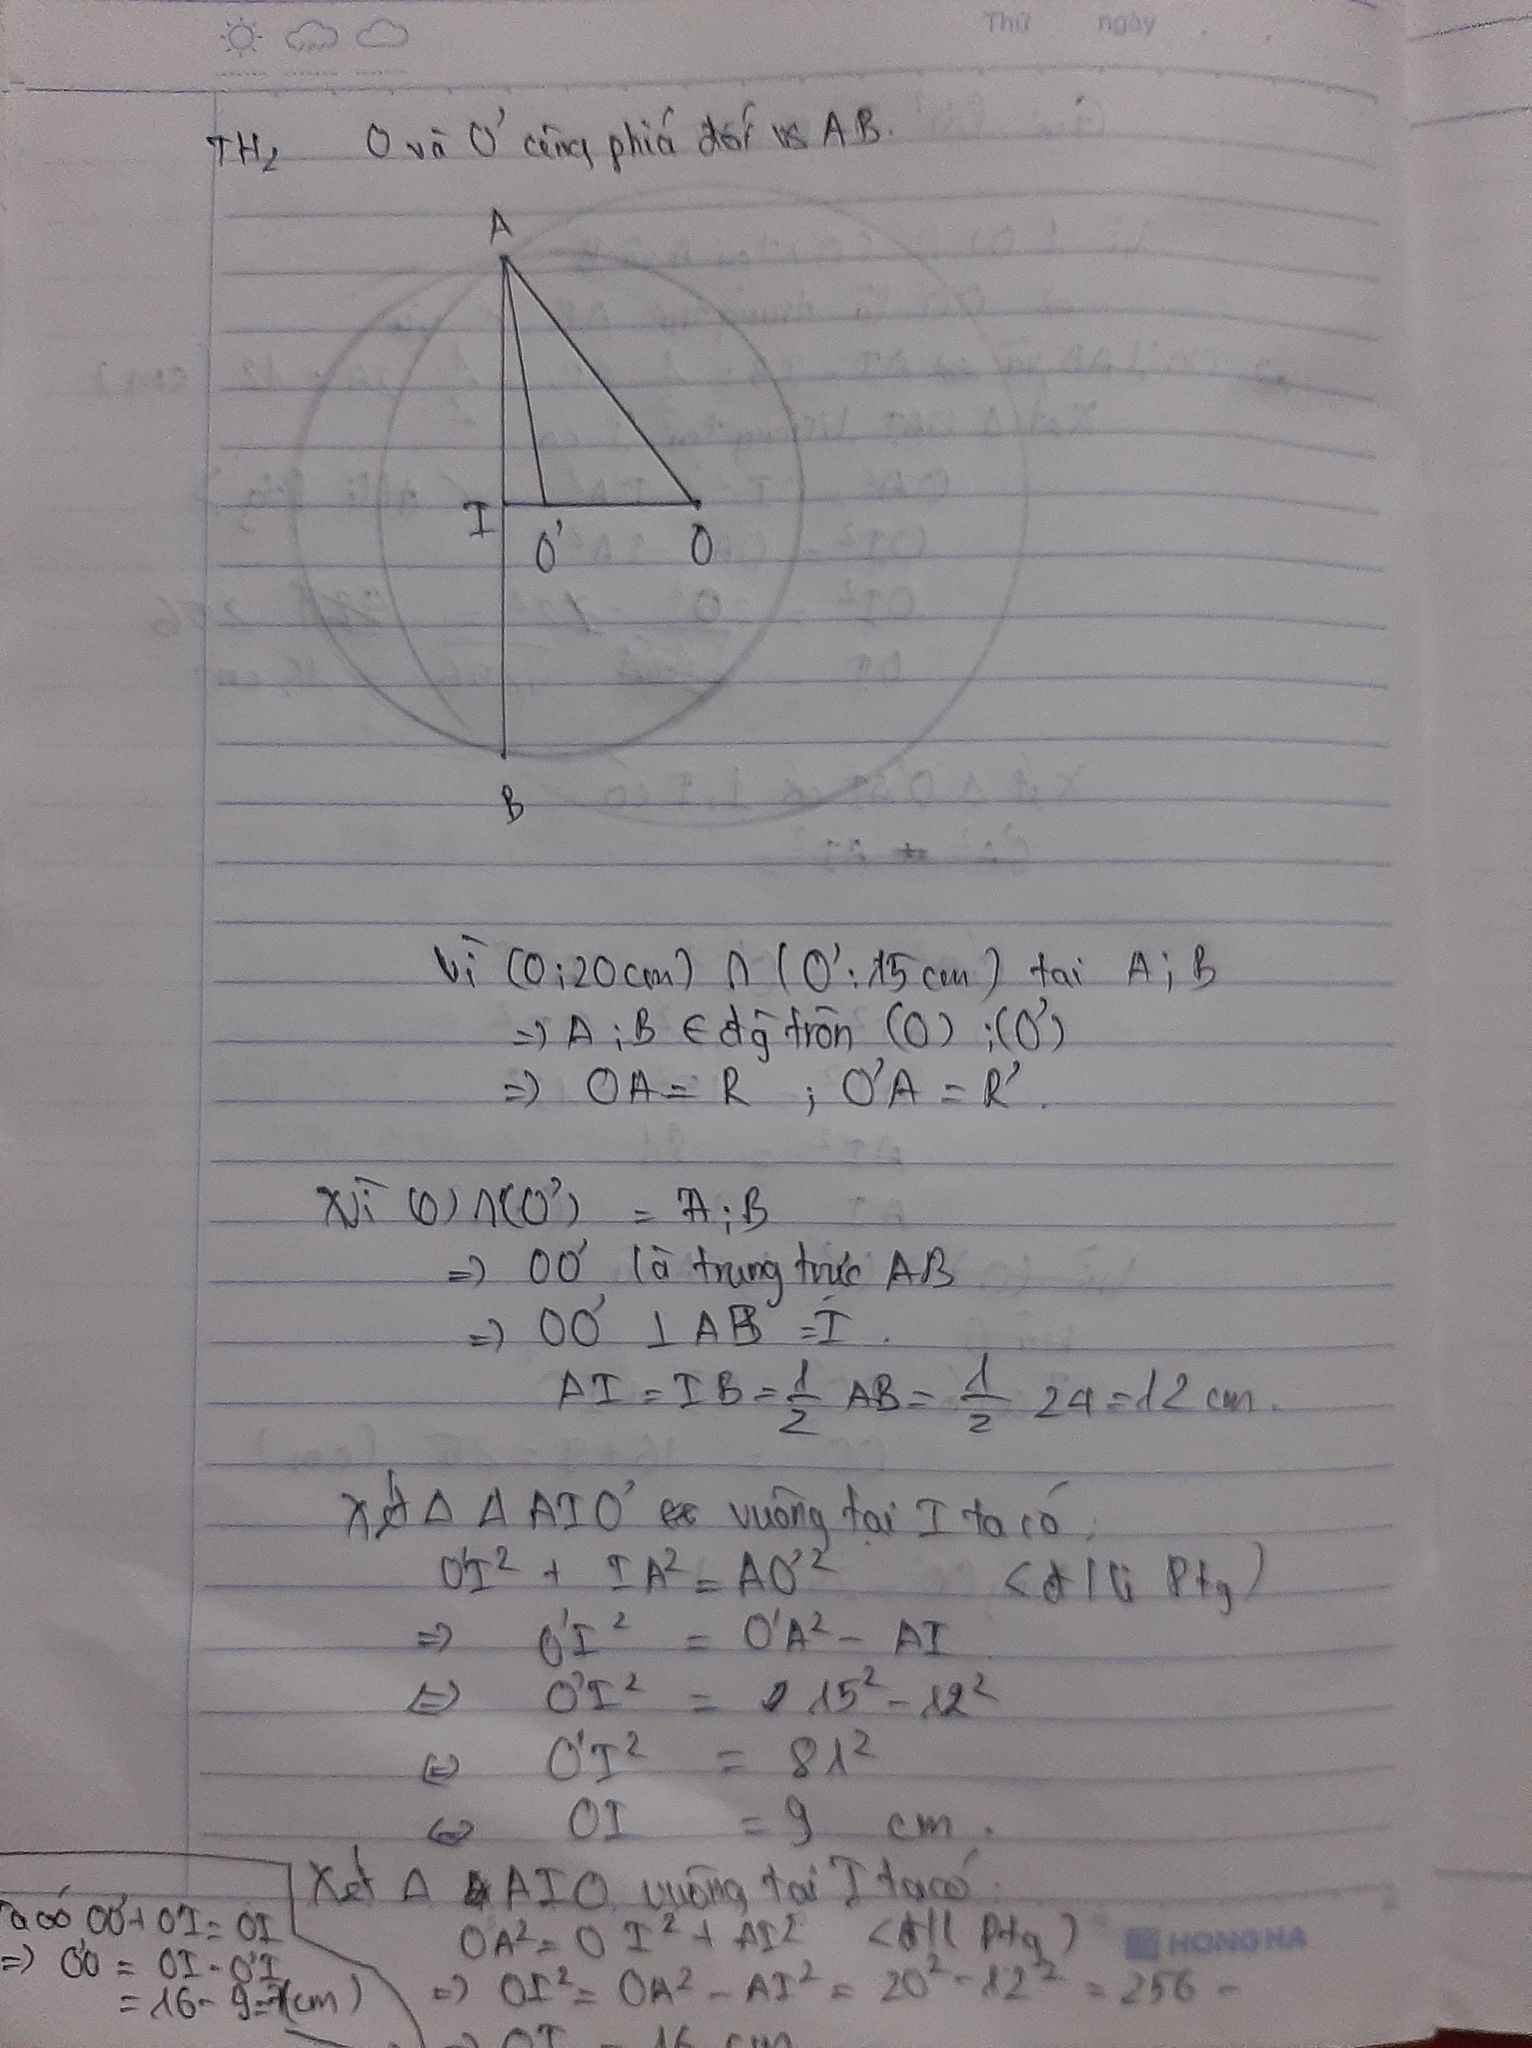 Thứ ngày
TH2 O và O' cùng phía đối vs AB.
A
I
O' O
B
Vì (O;20cm) ∩ (O';15cm) tại A;B
=> A;B ∈ đg tròn (O);(O')
=> OA = R ; O'A = R'.
Vì (O) ∩ (O') = A;B
=> OO' là trung trực AB
=> OO' ⊥ AB = I.
AI = IB = 1/2 AB = 1/2 24 = 12 cm.
Xét Δ Δ AIO' vuông tại I ta có:
O'I² + IA² = AO'² (đ/lí Ptg)
=> O'I² = O'A² - AI
<=> O'I² = 15² - 12²
<=> O'I² = 81²
<=> OI = 9 cm.
Xét Δ AIO vuông tại I ta có:
OA² = OI² + AI² (đ/l Ptg)
=> OI² = OA² - AI² = 20² - 12² = 256
=> OI = 16 cm
Ta có OO' + O'I = OI
=> O'O = OI - O'I
= 16 - 9 = 7(cm)
HONG HA